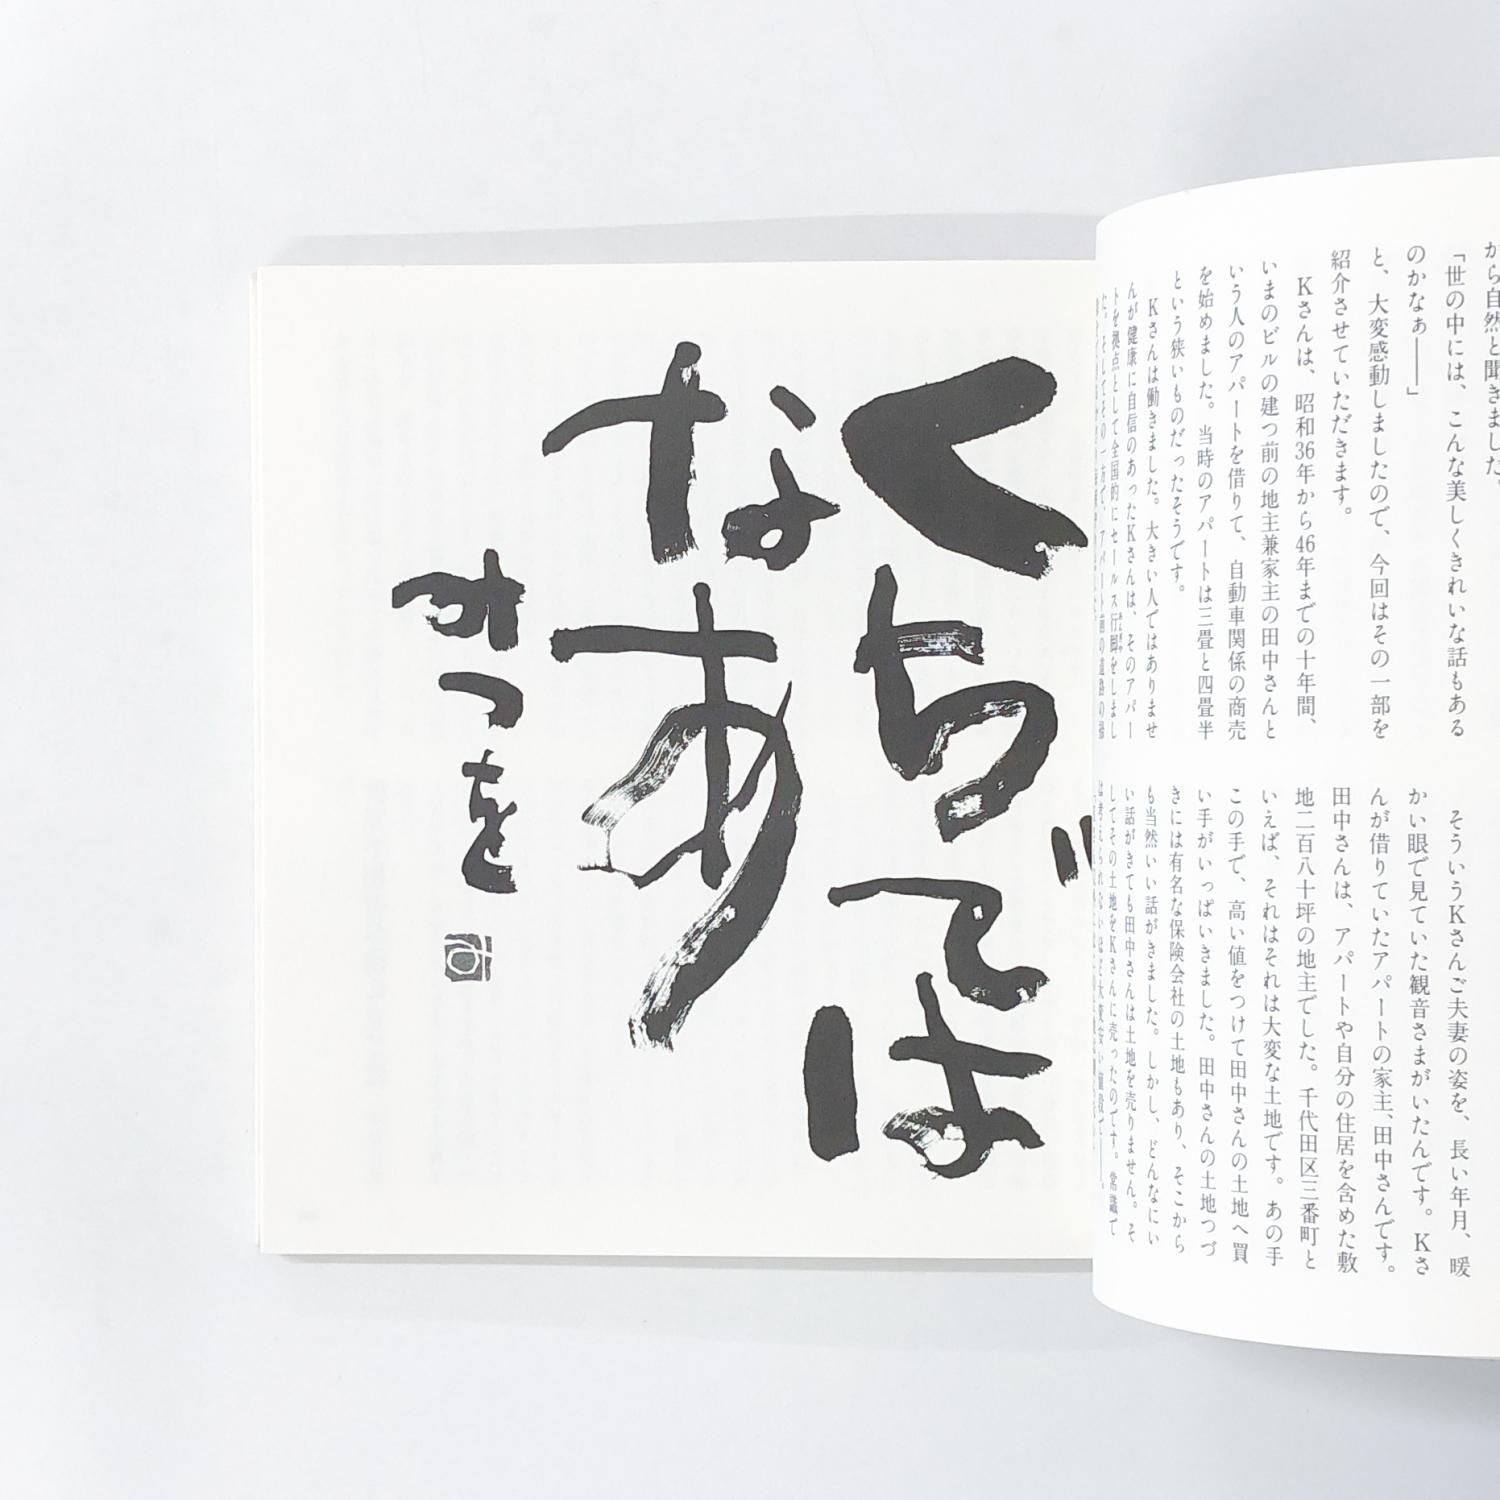 から自然と聞きました。
「世の中には、こんな美しくきれいな話もある
のかなぁ――」
と、大変感動しましたので、今回はその一部を
紹介させていただきます。
Kさんは、昭和36年から46年までの十年間、
いまのビルの建つ前の地主兼家主の田中さんと
いう人のアパートを借りて、自動車関係の商売
を始めました。当時のアパートは三畳と四畳半
という狭いものだったそうです。
Kさんは働きました。大きい人ではありませ
んが健康に自信のあったKさんは、そのアパー
トを拠点として全国的にセールス行脚をしまし
た。そしてその一方で、アパート
そういうKさんご夫妻の姿を、長い年月、暖
かい眼で見ていた観音さまがいたんです。Kさ
んが借りていたアパートの家主、田中さんです。
田中さんは、アパートや自分の住居を含めた敷
地二百八十坪の地主でした。千代田区三番町と
いえば、それはそれは大変な土地です。あの手
この手で、高い値をつけて田中さんの土地へ買
い手がいっぱいきました。田中さんの土地つづ
きには有名な保険会社の土地もあり、そこから
も当然いい話がきました。しかし、どんなにい
い話がきても田中さんは土地を売りません。そ
してその土地をKさんに売ったのです。常識で
は考えられないほど大変安い値段で――。
くちでは
なあ
みつを